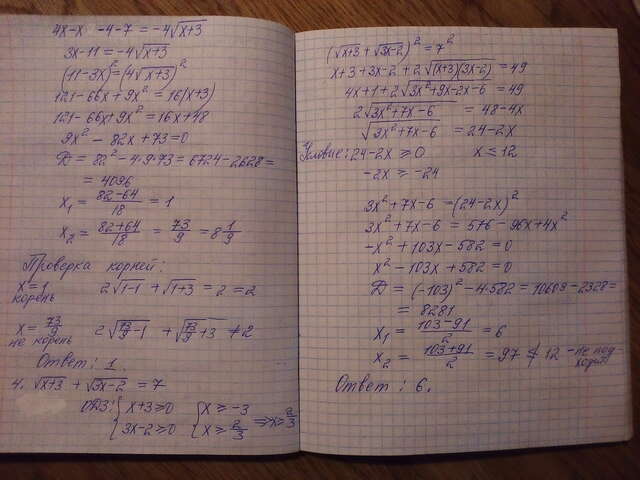 4x-x -4-7 = -4√(x+3)
3x-11 = -4√(x+3)
(11-3x)² = (4√(x+3))²
121-66x+9x² = 16(x+3)
121-66x+9x² = 16x+48
9x² - 82x+73=0
D = 82²-4·9·73 = 6724-2628=
= 4096
x₁ = (82-64)/18 = 1
x₂ = (82+64)/18 = 73/9 = 8 1/9
Проверка корней:
x=1 2√(1-1) + √(1+3) = 2 = 2
корень
x = 73/9 2√(73/9 -1) + √(73/9 +3) ≠ 2
не корень
Ответ: 1.
4. √(x+3) + √(3x-2) = 7
ОДЗ: { x+3≥0 { x ≥ -3
{ 3x-2≥0 { x ≥ 2/3 ⇒ x ≥ 2/3
(√(x+3) + √(3x-2))² = 7²
x+3+3x-2+2√((x+3)(3x-2)) = 49
4x+1+2√(3x²+9x-2x-6) = 49
2√(3x²+7x-6) = 48-4x
√(3x²+7x-6) = 24-2x
Условие: 24-2x ≥ 0 x ≤ 12
-2x ≥ -24
3x²+7x-6 = (24-2x)²
3x²+7x-6 = 576-96x+4x²
-x²+103x-582 = 0
x²-103x+582 = 0
D = (-103)²-4·582 = 10609-2328=
= 8281
x₁ = (103-91)/2 = 6
x₂ = (103+91)/2 = 97 ≰ 12 - не под-
ходит
Ответ: 6.